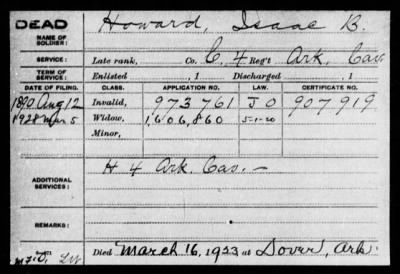 DEAD
NAME OF SOLDIER:
Howard, Isaac B.
SERVICE: Late rank, Co. C, 4 Reg't Ark. Cav.
TERM OF SERVICE: Enlisted , 1 Discharged , 1
DATE OF FILING. CLASS. APPLICATION NO. LAW. CERTIFICATE NO.
1890 Aug 12 Invalid, 973761 J O 907919
1928 Mar 5 Widow, 1,606,860 5-1-20
Minor,
H 4 Ark. Cav. –
ADDITIONAL SERVICES:
REMARKS:
Died March 16, 1923 at Dover, Ark.